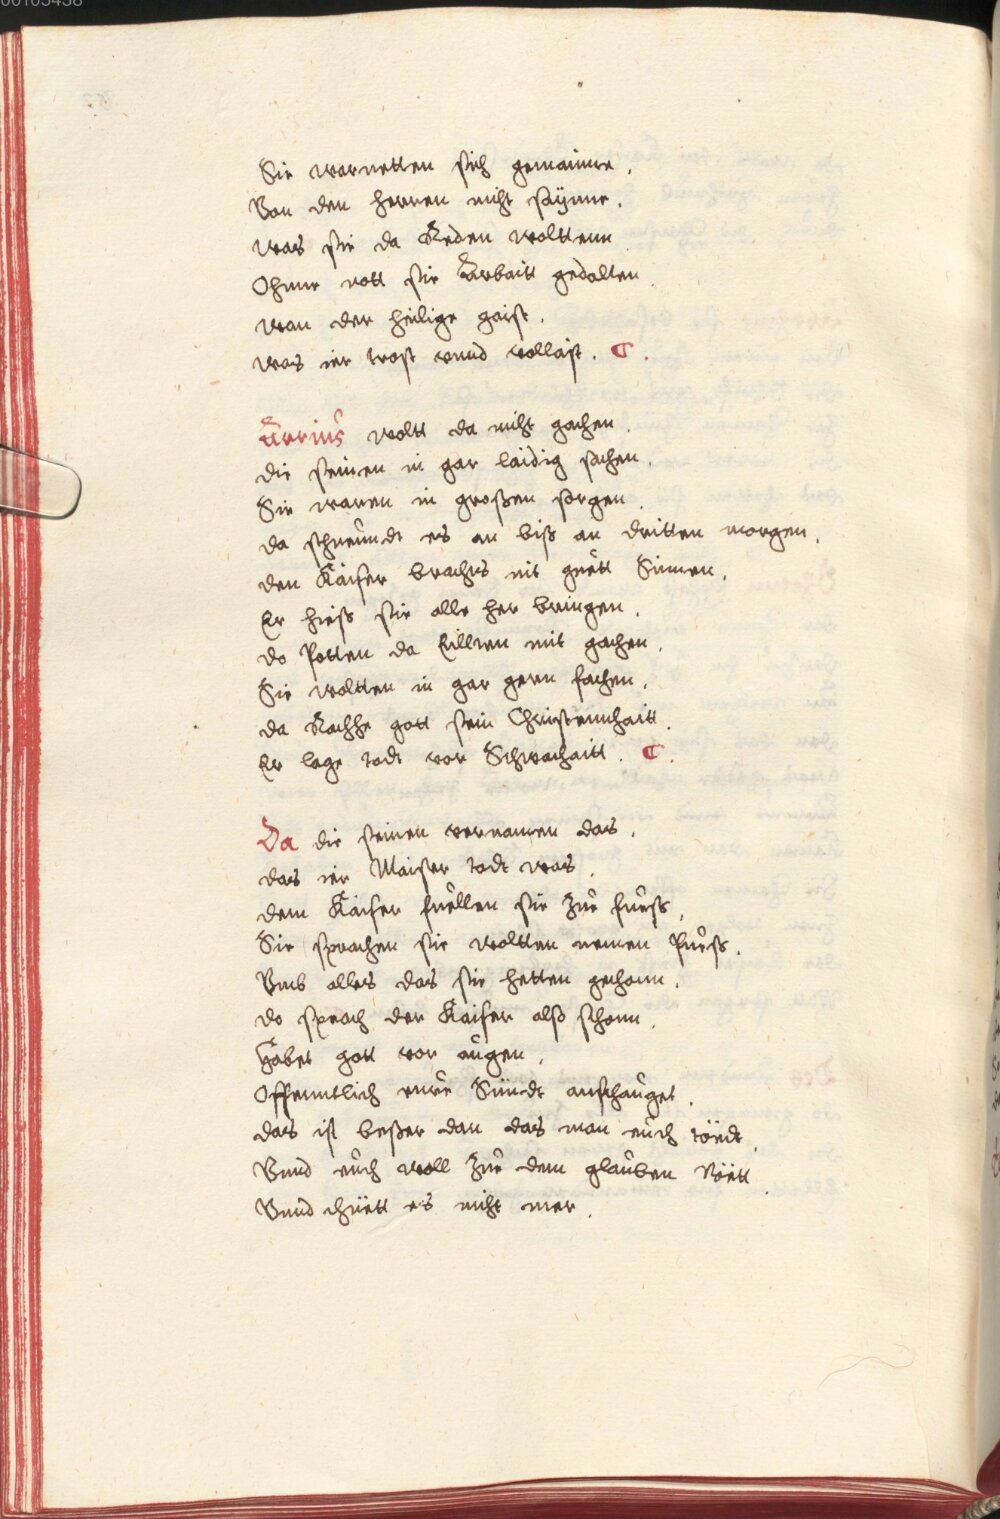 00105438
Sie warnetten sich gemainne.
Von den herren nicht saÿnne.
was sie da Reden wolttenn
Ohnne nott sie Arbaitt gedolten.
wan der heilige gaist.
was ier trost vnnd vollaist. C.
Arrius woltt da nicht gachen.
die seinen in gar laidig sachen.
Sie waren in großen sorgen.
da schneundt es an biß an dritten morgen.
den Kaiser brachts nit guett Sinnen.
Er hieß sie alle her bringen.
do Potten da Eillten mit gachen.
Sie woltten in gar gern fachen.
da Rachhe gott sein Christennhaitt.
Er lage todt vor Schwachaitt. C.
Da die seinen vernamen das.
das ier Maister todt was.
dem Kaiser fuellen sie Zue fueß.
Sie sprachen sie woltten nemen Pueß.
Vmb alles das sie hetten gethann.
do sprach der Kaiser alß schonn.
Habet gott vor augen.
Offenntlich eure Sündt anschauget.
das ist beßer dan das man euch tödt.
Vnnd euch woll Zue dem glauben Nött.
Vnnd thuett es nicht mer.